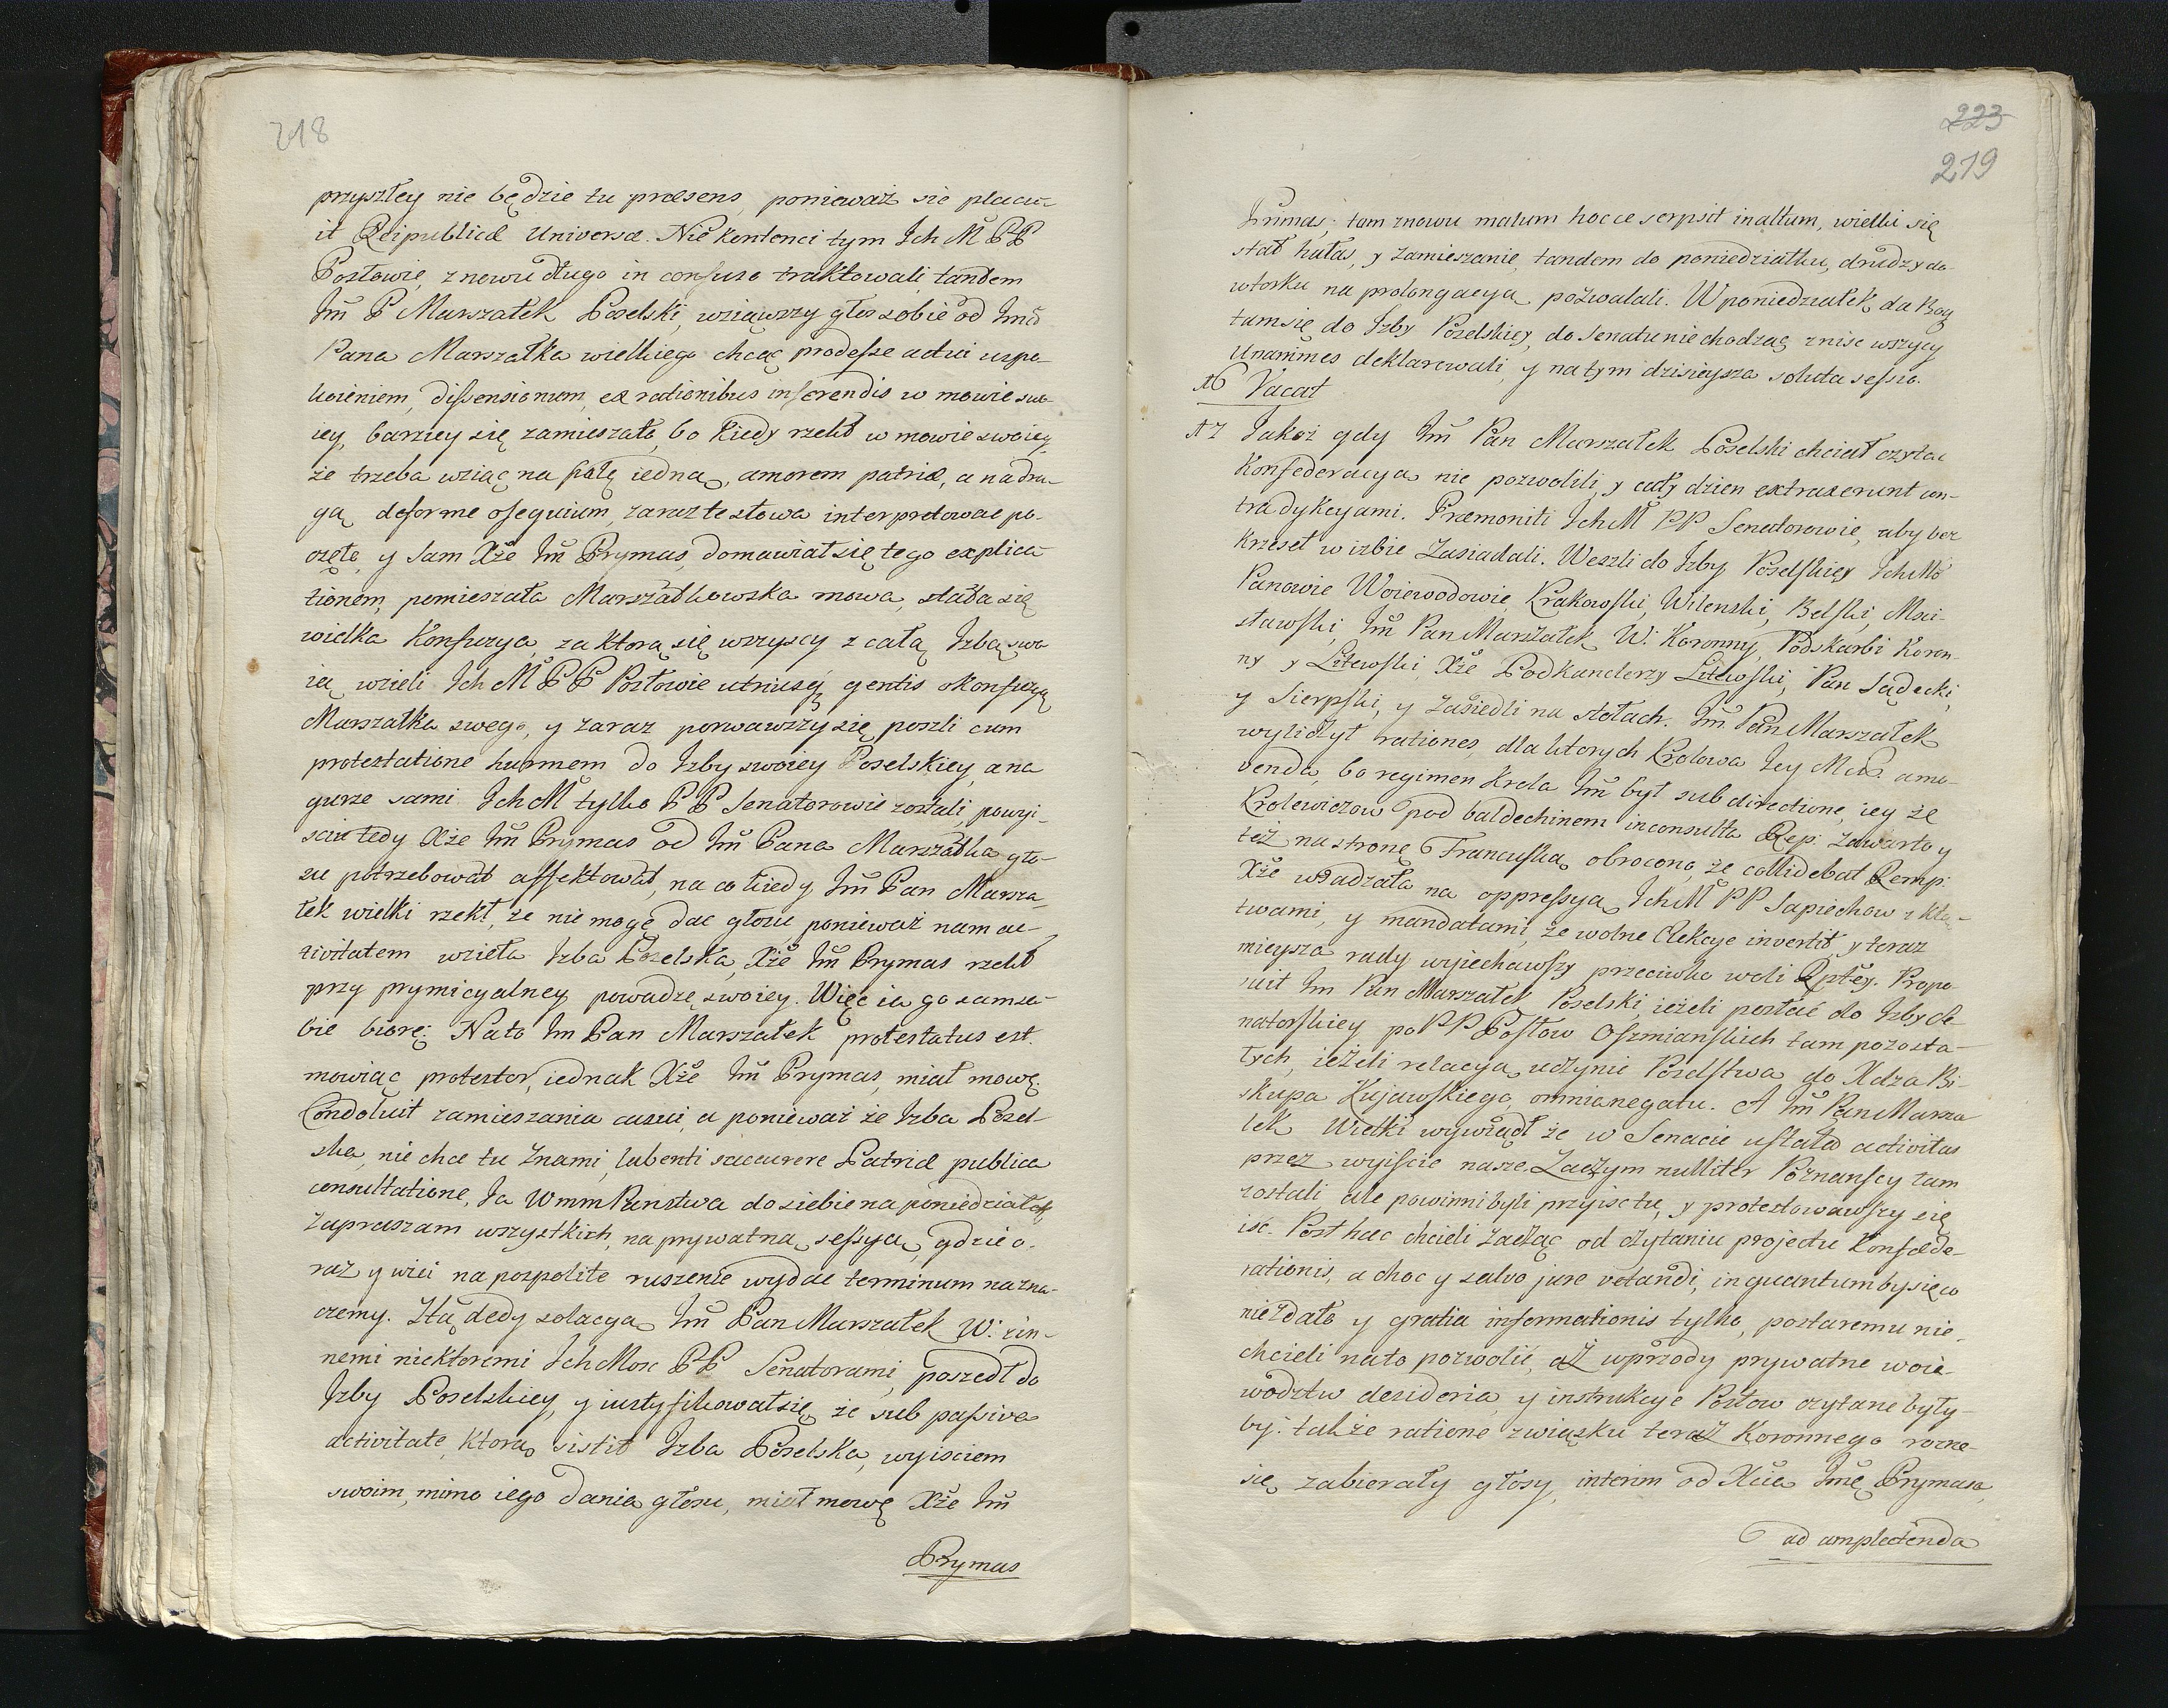 218
przyszłey nie będzie tu præsens, ponieważ sie placu-
it Reipublicæ Universæ. Nie kontenci tym Ich M PP
Posłowie, znowu długo in confuso traktowali, tandem
Jm̃ P Marszałek Poselski, wziąwszy głos sobie od Jmci
Pana Marszałka wielkiego chcąc prodesse actui uspo-
koieniem, dissensionum, ex rationibus inserendis w mowie swo-
iey, barziey się zamieszało, bo kiedy rzekł w mowie swoiey
że trzeba wziąc na szalę iedną, amorem patriæ, a na dru-
gą deforme osequium, zaraz te słowa interpretowac po-
częto, y sam Xże Jm̃ Prymas, domawiał się tego explica-
tionem, pomieszała Marszałkowska mowa, stała się
wielka Konfuzya, za ktorą się wszyscy z całą Izbą swo
ią wzieli Ich M PP Posłowie utriusq gentis o konfuzyą
Marszałka swego, y zaraz porwawszy się poszli cum
protestatione hurmem do Izby swoiey Poselskiey, a na
gurze sami Ich M tylko PP Senatorowie zostali, po wyi-
sciu tedy Xże Jm̃ Prymas od Jm̃ Pana Marszałka gło-
su potrzebował affektował, na co kiedy Jm̃ Pan Marsza-
łek wielki rzekł, że nie mogę dac głosu ponieważ nam ac-
tivitatem wzieła Izba Poselska, Xże Jm̃ Prymas rzekł
przy prymicyalney powadze swoiey. Więc ia go sam so-
bie biorę: Na to Jm Pan Marszałek protestatus est.
mowiąc protestor, iednak Xże Jm̃ Prymas, miał mowę.
Condoluit zamieszania casui, a ponieważ że Izba Posel-
ska, nie chce tu znami, lubenti succurere Patriæ publica
consultatione, Ja WmmPanstwa do siebie na poniedziałek
zapraszam wszystkich, na prywatną sessyą, gdzie o-
raz y wici na pospolite ruszenie wydac terminum nazna-
czemy. Ztą dedy solacyą Jm̃ Pan Marszałek W: zin-
nemi niektoremi Ich Mośc PP Senatorami, poszedł do
Izby Poselskiey, y iustyfikował się że sub passiva
activitate, ktorą sistit Izba Poselska, wyisciem
swoim, mimo iego dania głosu, miał mowę Xże Jm̃
Prymas
223
219
Primas, tam znowu malum hocce serpsit in altum, wielki się
stał hałas, y zamieszanie, tandem do poniedziałku, drudzy do
wtorku na prolongacyą pozwalali. W poniedziałek da Bog
tamsię do Izby Poselskiey, do Senatu nie chodząc znisc wszyscy
Unanimes deklarowali, y na tym dzisieysza soluta sessio.
16 Vacat
17 Jakoż gdy Jm̃ Pan Marszałek Poselski chciał czytac
Konfederacyą nie pozwolili y cały dzien extraxerunt con-
tradykcyami. Præmoniti Ich M PP Senatorowie, aby bez
krzeseł w izbie zasiadali. Weszli do Izby Poselskiey IchMo
Panowie Woiewodowie, Krakowski, Wilenski, Belski, Msci-
sławski, Jm̃ Pan Marszałek W: Koronny, Podskarbi Koron-
ny y Litewski, Xże Podkanclerzy Litewski, Pan Sądecki,
y Sierpski, y zasiedli na stołach. Jm̃ Pan Marszałek
wyliczył rationes, dla ktorych Krolowa Jey Mć amo-
venda, bo regimen Krola Jm̃ był sub directione, iey że
Krolewiczow pod baldechinem inconsulta Rep: zawarto y
też na stronę Francuską obrocono, że collidebat Remp:
Xże wsadzała na oppressyą Ich M PP Sapiechow z kłó-
twami, y mandatami, że wolne Elekcye invertit, y teraz
mieysza rady wyiechawszy przeciwko woli Rptey. Propo-
suit Jm Pan Marszałek Poselski, ieżeli posłać do Izby Se-
natorskiey po PP Posłow Oszmianskich tam pozosta-
łych, ieżeli relacyą uczynic Poselstwa do Xdza Bi-
skupa Kujawskiego, omnia negatu. A Jm̃ Pan Marsza
łek Wielki wywiądł że w Senacie ustała activitas
przez wyiscie nasze. Zaczym nulliter Poznanscy tam
zostali ale powinni byli przyisc tu, y protestowawszy się
isc. Post hac chcieli zacząc od czytaniu projectu Konfæde-
rationis, a choc y salvo jure vetandi, in quantum by się co
nie zdało y gratia informationis tylko, postaremu nie-
chcieli na to pozwolić, aż wprzody prywatne woie-
wodztw desideria, y instrukcye Posłow czytane były-
by: także ratione związku teraz Koronnego rozne-
się zabierały głosy, interim od Xcia Jmę Prymasa,
ad amplectenda